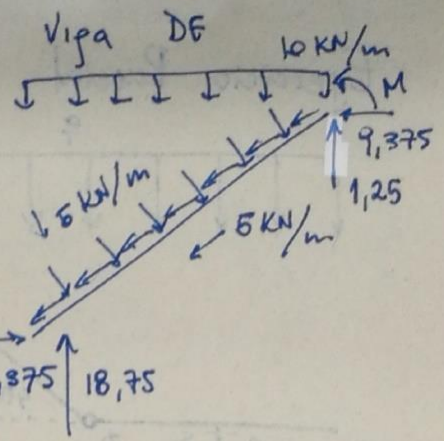 Viga DE
10 KN/m
M
9,375
1,25
5 KN/m
5 KN/m
,375
18,75